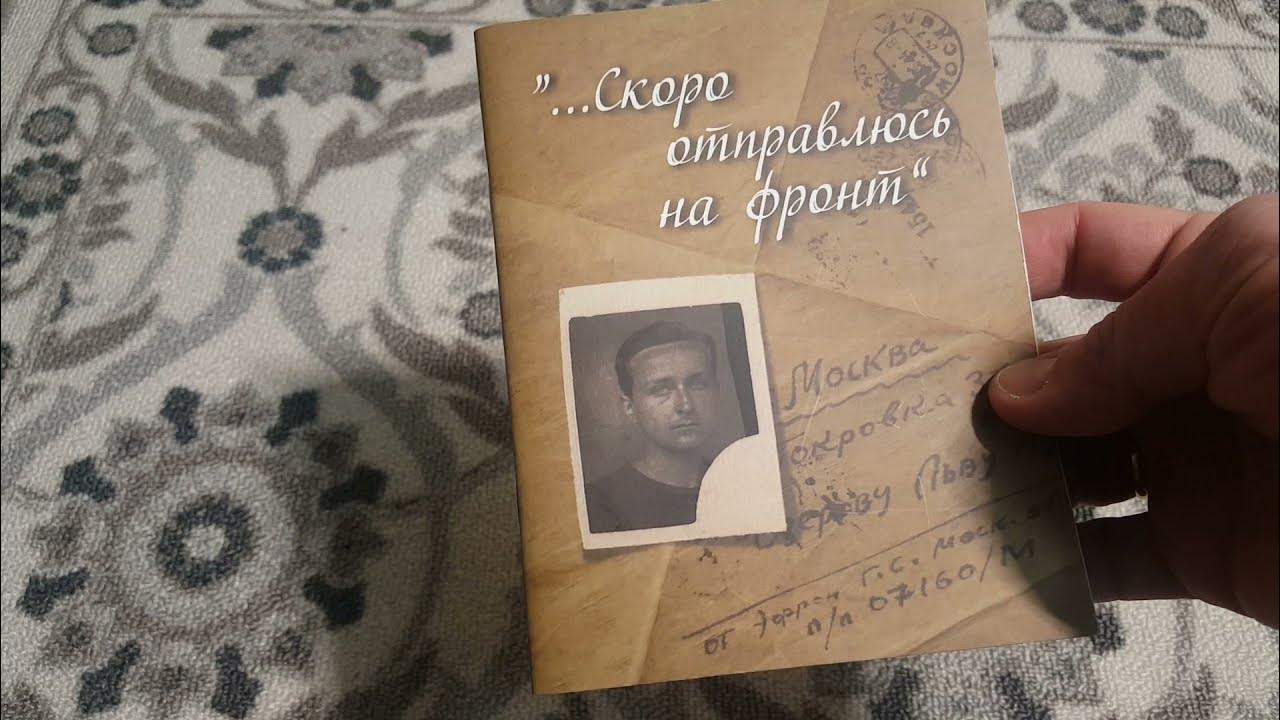 "...Скоро
отправлюсь
на фронт"
МОСКВА
Москва
окровка
Льву
от Эфрон Г.С. Моск.
п/п 07160/М